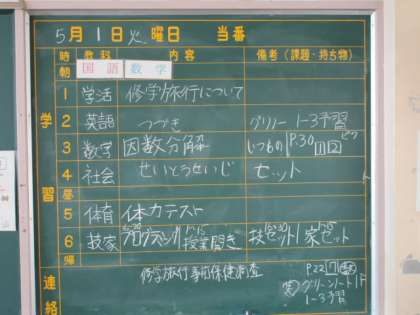 5月1日火曜日 当番
時 教科 内容 備考(課題・持ち物)
朝 国語 数学
学習
1 学活 修学旅行について
2 英語 つづき グリノー 1-3予習
3 数学 因数分解 いつもの P.30 1 2
4 社会 せいとうせいじ セット
昼
5 体育 体力テスト
6 技家 プログラミング 授業開き 技セット 家セット
帰
連絡
修学旅行事前保健調査
P.22 7
英 グリーンノート
1-3予習